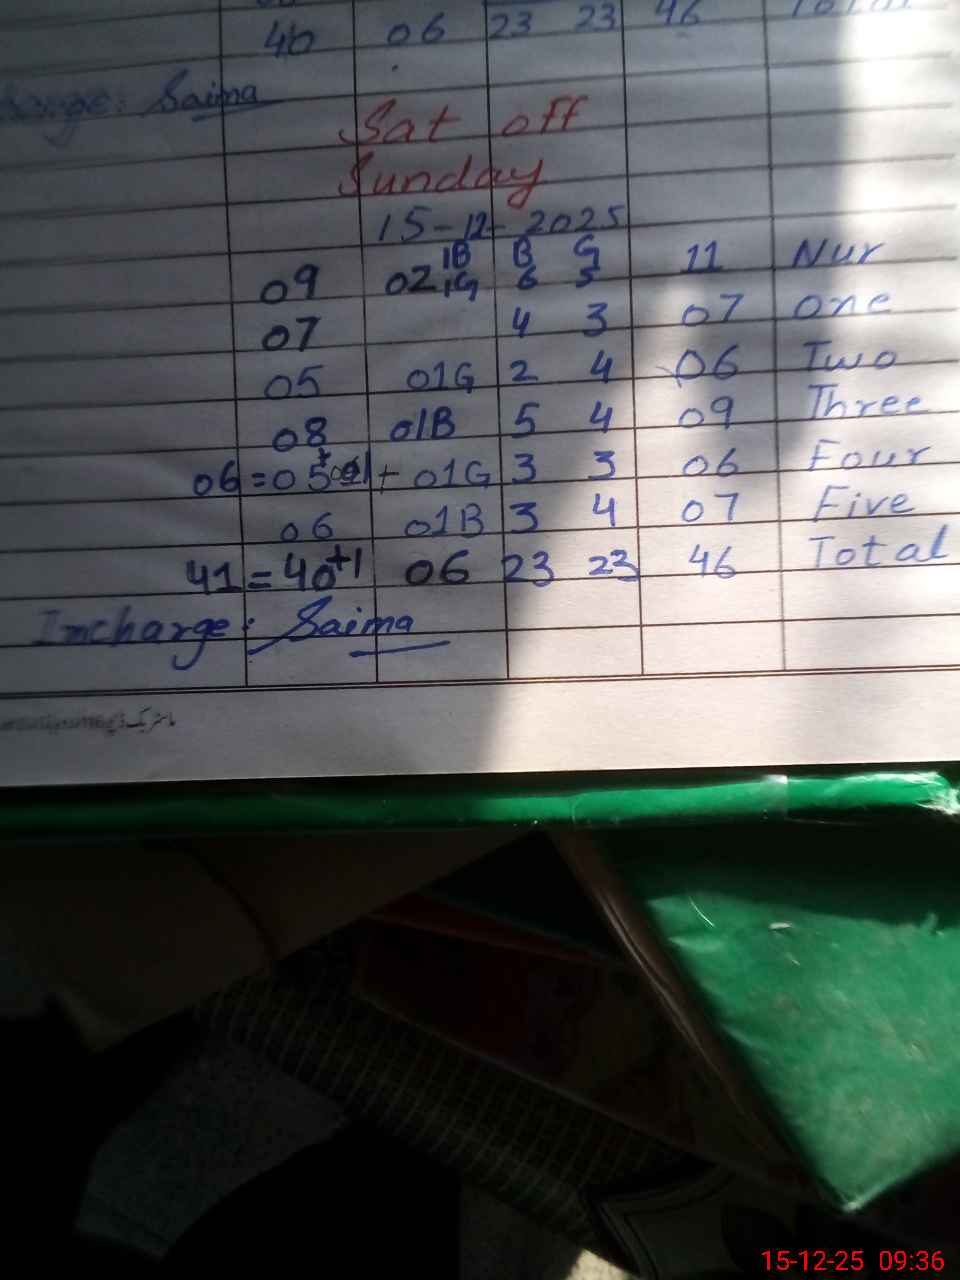 40 06 23 23 46 Total
Saima
Sat off
Sunday
15-12-2025
1B B G
09 02 1G 6 5 11 Nur
07 4 3 07 one
05 01G 2 4 06 Two
08 01B 5 4 09 Three
06 = 05 + 01 + 01G 3 3 06 Four
06 01B 3 4 07 Five
41 = 40+1 06 23 23 46 Total
Incharge: Saima
15-12-25 09:36